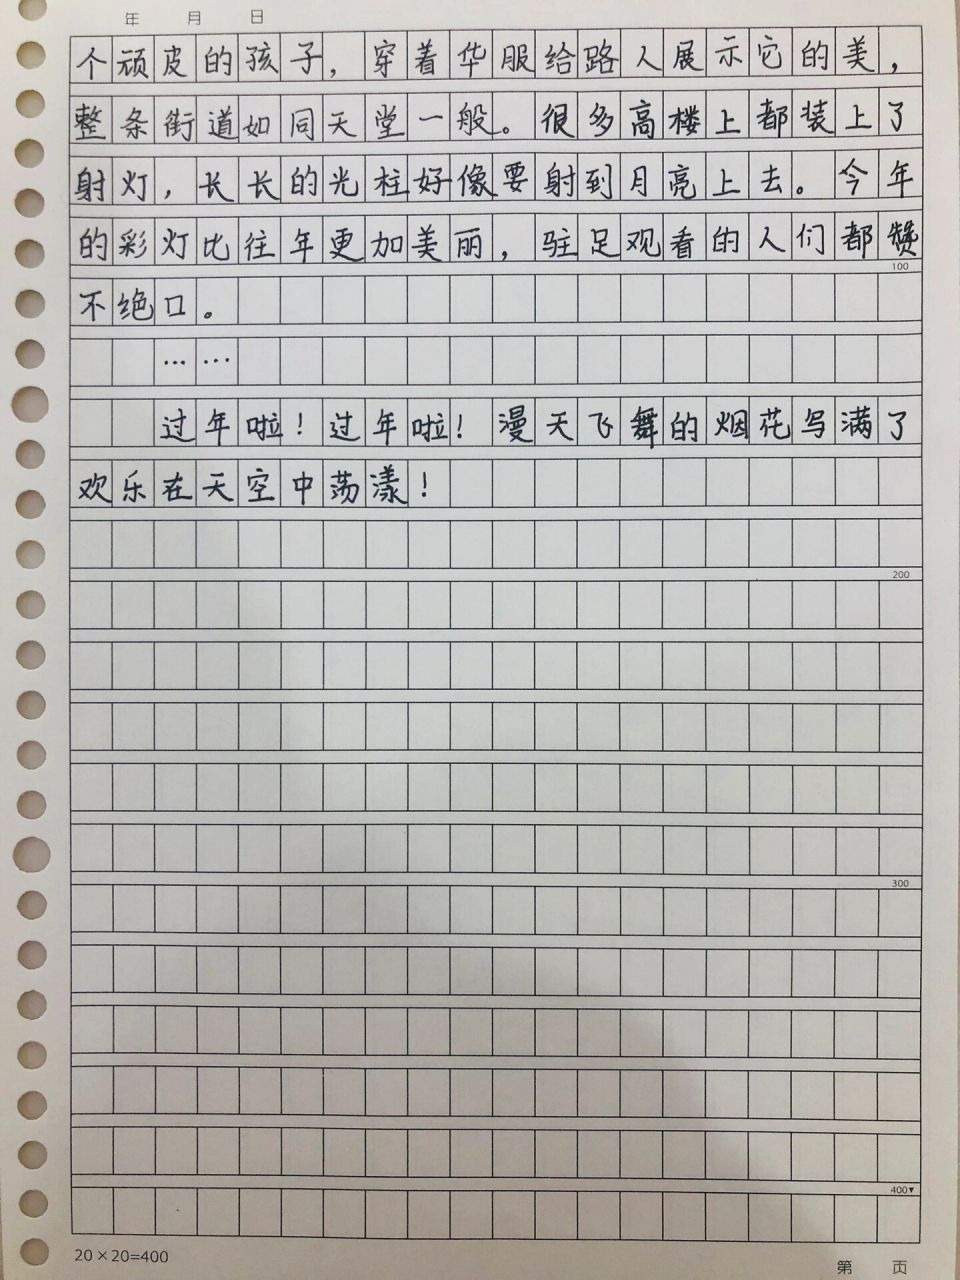 年 月 日
个顽皮的孩子，穿着华服给路人展示它的美，
整条街道如同天堂一般。很多高楼上都装上了
射灯，长长的光柱好像要射到月亮上去。今年
的彩灯比往年更加美丽，驻足观看的人们都赞
100
不绝口。
……
过年啦！过年啦！漫天飞舞的烟花写满了
欢乐在天空中荡漾！
200
300
400▼
20×20=400
第 页